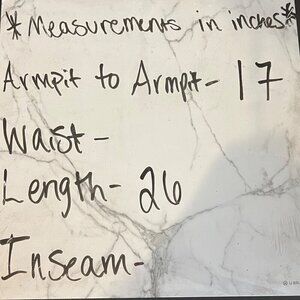 * Measurements in inches*
Armpit to Armpit- 17
Waist -
Length- 26
Inseam-